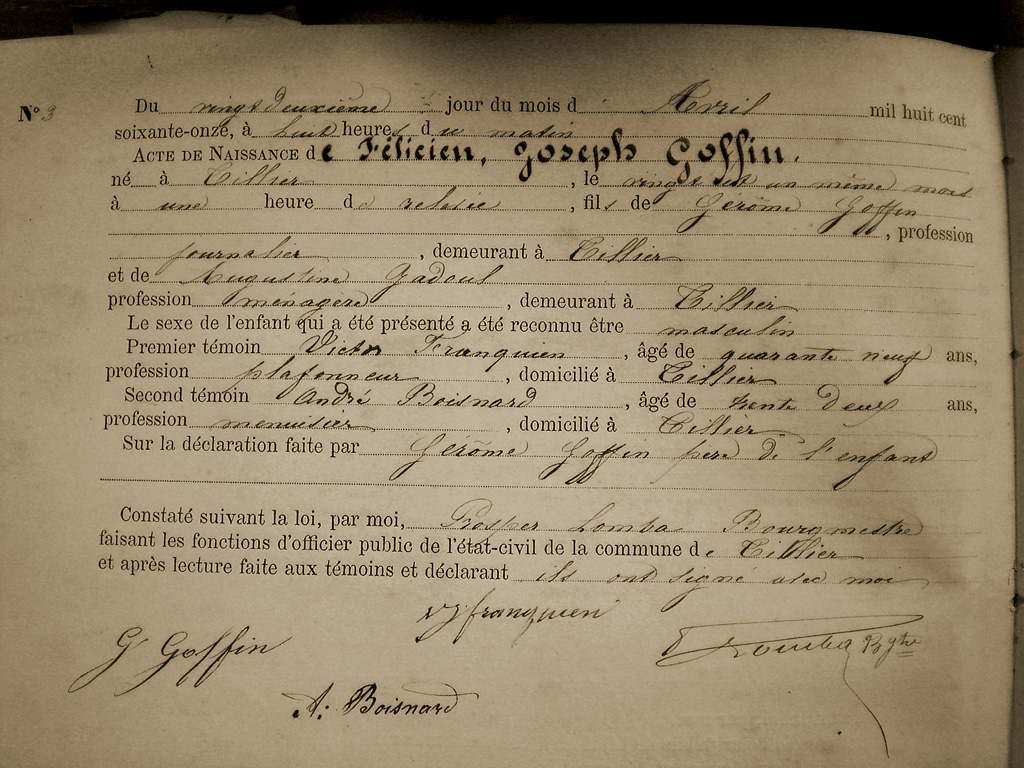 N° 3
Du vingt deuxième jour du mois d' Avril mil huit cent
soixante-onze, à huit heures du matin
ACTE DE NAISSANCE de Félicien, Joseph Goffin.
né à Tillier, le vingt et un même mois
à une heure de relevée, fils de Gérôme Goffin
, profession
journalier, demeurant à Tillier
et de Augustine Gadoul
profession ménagère, demeurant à Tillier
Le sexe de l'enfant qui a été présenté a été reconnu être masculin
Premier témoin Victor Franquien, âgé de quarante neuf ans,
profession plafonneur, domicilié à Tillier
Second témoin André Boisnard, âgé de trente deux ans,
profession menuisier, domicilié à Tillier
Sur la déclaration faite par Gérôme Goffin père de l'enfant
Constaté suivant la loi, par moi, Prosper Lomba Bourgmestre
faisant les fonctions d'officier public de l'état-civil de la commune de Tillier
et après lecture faite aux témoins et déclarant ils ont signé avec moi
VJ franquien
G Goffin
Lomba Bgtre
A. Boisnard